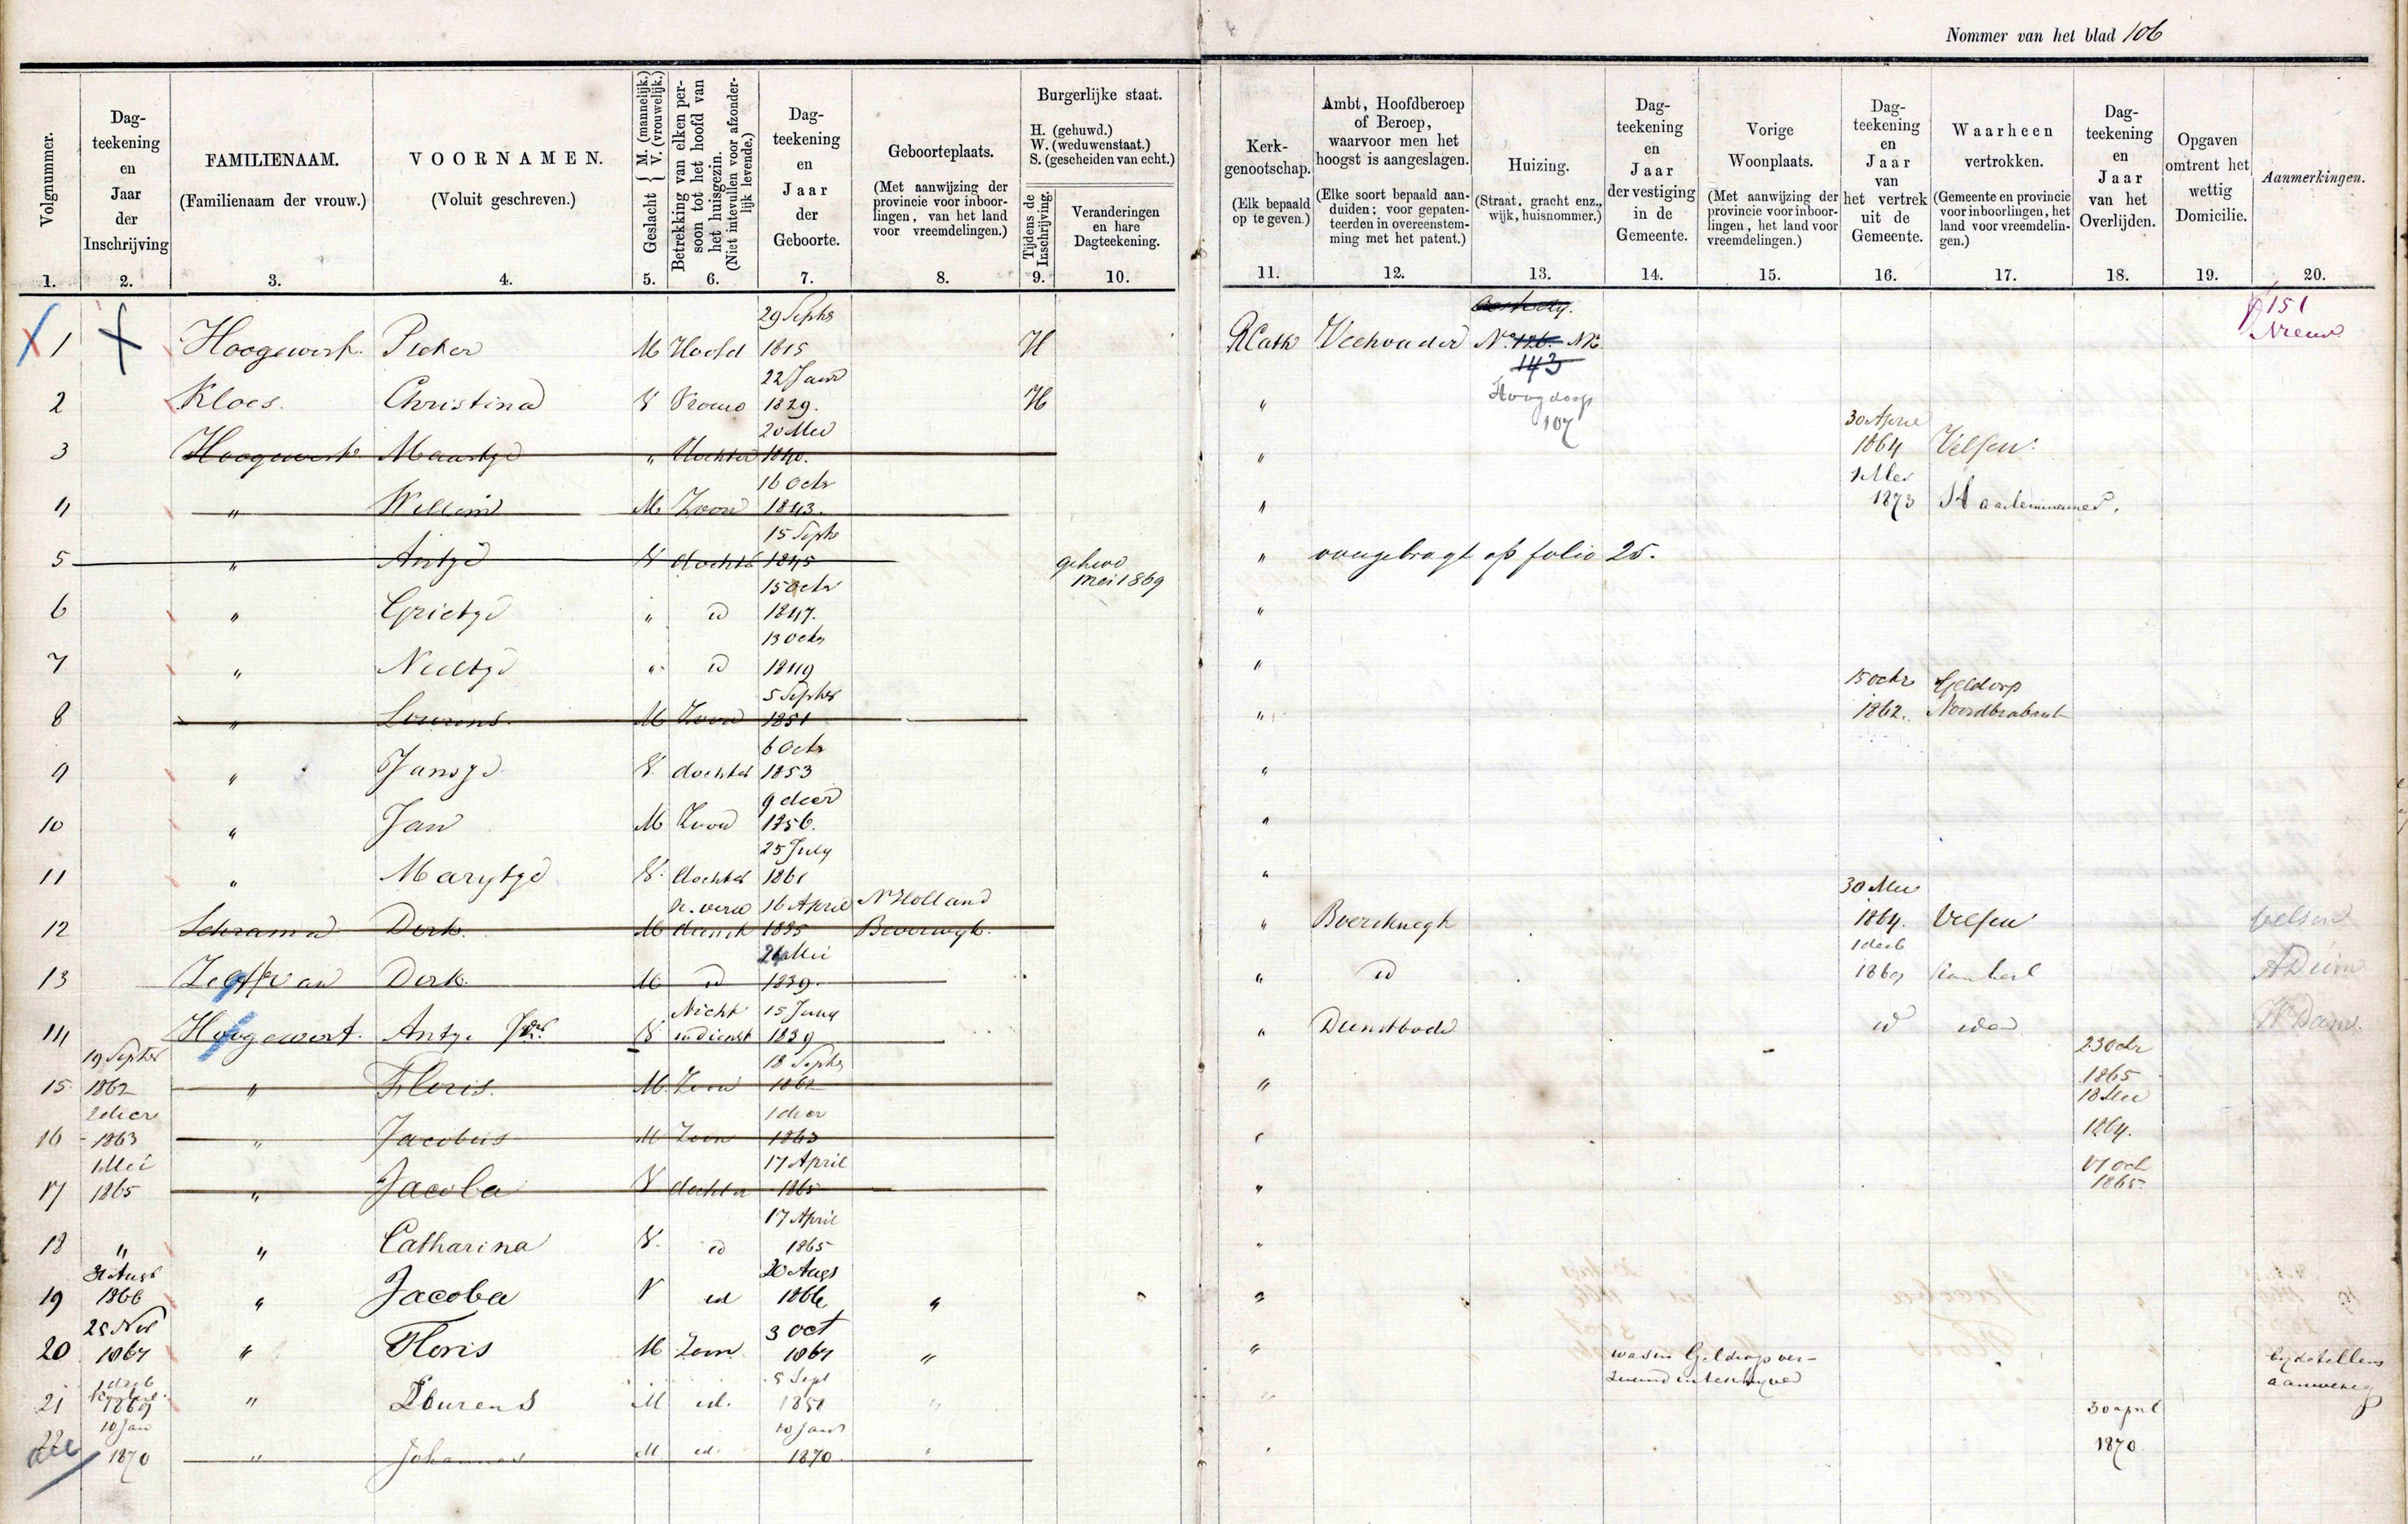 Nommer van het blad 106
Volgnummer.
Dag-
teekening
en
Jaar
der
Inschrijving
FAMILIENAAM.
(Familienaam der vrouw.)
VOORNAMEN.
(Voluit geschreven.)
Geslacht { M. (mannelijk.) V. (vrouwelijk.)
Betrekking van elken per-
soon tot het hoofd van
het huisgezin.
(Niet intevullen voor afzonder-
lijk levende.)
Dag-
teekening
en
Jaar
der
Geboorte.
Geboorteplaats.
(Met aanwijzing der
provincie voor inboor-
lingen, van het land
voor vreemdelingen.)
Burgerlijke staat.
H. (gehuwd.)
W. (weduwenstaat.)
S. (gescheiden van echt.)
Tijdens de
Inschrijving.
Veranderingen
en hare
Dagteekening.
Kerk-
genootschap.
(Elk bepaald
op te geven.)
Ambt, Hoofdberoep
of Beroep,
waarvoor men het
hoogst is aangeslagen.
(Elke soort bepaald aan-
duiden; voor gepaten-
teerden in overeenstem-
ming met het patent.)
Huizing.
(Straat, gracht enz.,
wijk, huisnommer.)
Dag-
teekening
en
Jaar
der vestiging
in de
Gemeente.
Vorige
Woonplaats.
(Met aanwijzing der
provincie voor inboor-
lingen, het land voor
vreemdelingen.)
Dag-
teekening
en
Jaar
van
het vertrek
uit de
Gemeente.
Waarheen
vertrokken.
(Gemeente en provincie
voor inboorlingen, het
land voor vreemdelin-
gen.)
Dag-
teekening
en
Jaar
van het
Overlijden.
Opgaven
omtrent het
wettig
Domicilie.
Aanmerkingen.
1. 2. 3. 4. 5. 6. 7. 8. 9. 10. 11. 12. 13. 14. 15. 16. 17. 18. 19. 20.
29 Septr 151
1 Hoogewerf. Pieter M Hoofd 1815 H RCath Veehouder No. 126. Nieuw
143
22 Janr
2 Kloes. Christina V Vrouw 1829. H " Hoogdorp
107
20 Mei 30 April
3 Hoogewerf Maartje " dochter 1840. " 1864 Velsen.
16 Octr 1 Mei
4 " Willem M Zoon 1843. " 1873 Haarlemmermeer.
15 Septr
5 " Antje V dochter 1845 gehuwd " overgebragt op folio 25.
mei 1869
15 Octr
6 " Grietje " id 1847. "
13 Octr
7 " Neeltje " id 1849 "
5 Septbr 15 Octr Geldorp
8 " Lourens. M Zoon 1851 " 1862. Noordbrabant
6 Octr
9 " Jansje V. dochter 1853 "
9 decr
10 " Jan M Zoon 1856. "
25 July
11 " Marijtje V. dochter 1861 "
16 April N Holland 30 Mei
12 Schrama Dirk. M dienst 1835 Beverwijk. " Boerknegt 1864. Velsen Velsen
24 Mei 1 decb
13 Dirk. M id 1839. " id 1869
Nicht 15 Juny
14 Hoogewerf. Antje V in dienst 1839 " Dienstbode id
19 Septbr 18 Septr 23 Octr
15 1862 " Floris. M. Zoon 1862 " 1865
2 decr 1 decr 18 Mei
16 1863 " Jacobus M Zoon 1863 " 1864.
1 Mei 17 April 17 Oct
17 1865 " Jacoba V dochter 1865 " 1865
17 April
18 " " Catharina V. id 1865 "
31 Augs 20 Augs
19 1866 " Jacoba V id 1866 " "
25 Nov 3 Oct
20 1867 " Floris M Zoon 1867 " "
1 decb 5 Sept was in Geldrop ver- bij de tellens
21 1869 " Lourens M id. 1851 " " aanwezig
10 Jan 10 Janr 30 april
22 1870 " Johannes M id. 1870. " " 1870.